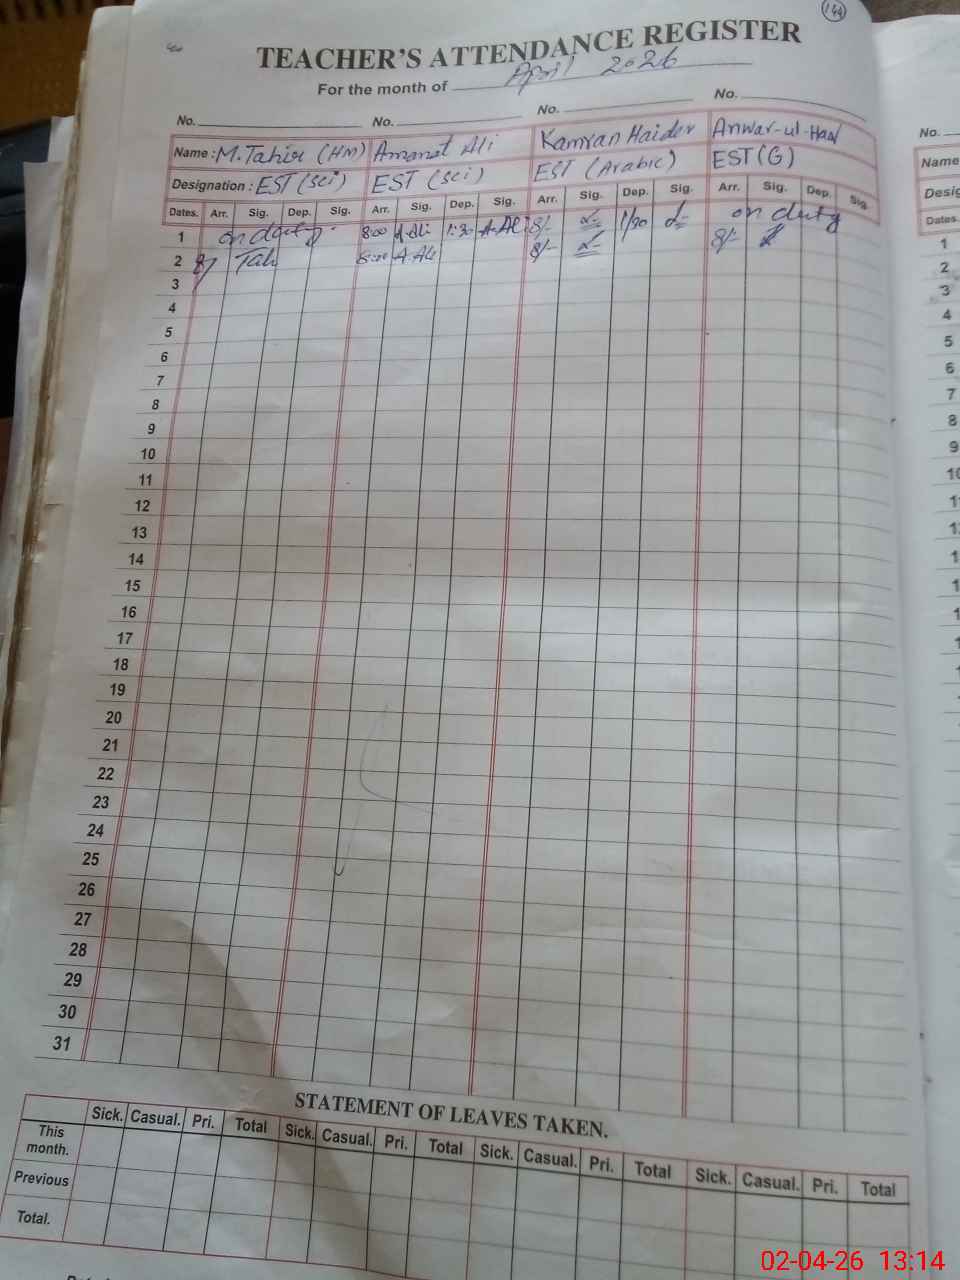 144
TEACHER'S ATTENDANCE REGISTER
For the month of April 2026
No. No. No. No.
Name : M. Tahir (HM) Amanat Ali Kamran Haider Anwar-ul-Haq
Designation : EST (Sci) EST (Sci) EST (Arabic) EST (G)
Dates. Arr. Sig. Dep. Sig. Arr. Sig. Dep. Sig. Arr. Sig. Dep. Sig. Arr. Sig. Dep. Sig.
1 on duty 8:00 A.Ali 1:30 A.Ali 8/- 1/30 on duty
2 8/ Tah 8:00 A.Ali 8/- 8/-
3
4
5
6
7
8
9
10
11
12
13
14
15
16
17
18
19
20
21
22
23
24
25
26
27
28
29
30
31
STATEMENT OF LEAVES TAKEN.
Sick. Casual. Pri. Total Sick. Casual. Pri. Total Sick. Casual. Pri. Total Sick. Casual. Pri. Total
This
month.
Previous
Total.
No.
Name
Desig
Dates
1
2
3
4
5
6
7
8
9
10
02-04-26 13:14